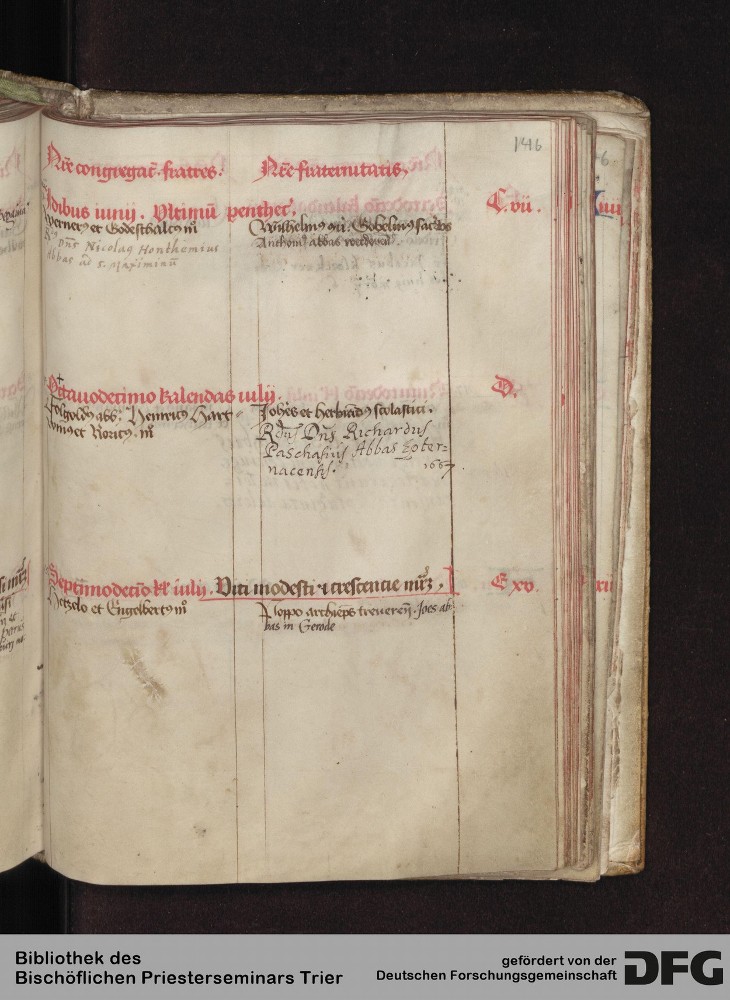 146
Nr̄e congregac̄. fratres. Nr̄e fraternitatis.
Idibus iunij. Ultimū penthec̄. C. vii.
Wernerꝰ et Godesthalcꝰ m̊ Gobelinꝰ sac̄dos
Dn̄s Nicolaꝰ Honthemius abbas
Abbas ad S. Maximinū
Octavodecimo kalendas iulij. D.
Folgoldꝰ abb. Henricꝰ Hart Joh̄es et herbradꝰ scolastici.
winꝰ et Roricꝰ. m̊ Rdus Dn̄s Richardus
Paschasius Abbas Epter-
nacensis. 1667
Septīmodeciō kl̄ iulij. Viti modesti ⁊ crescencie mr̄ꝝ. E xv.
Hetzelo et Engelbertꝰ m̊ Poppo archiep̄s treveren̄. Joēs ab
bas in Gerode
Bibliothek des
Bischöflichen Priesterseminars Trier
gefördert von der
Deutschen Forschungsgemeinschaft
DFG